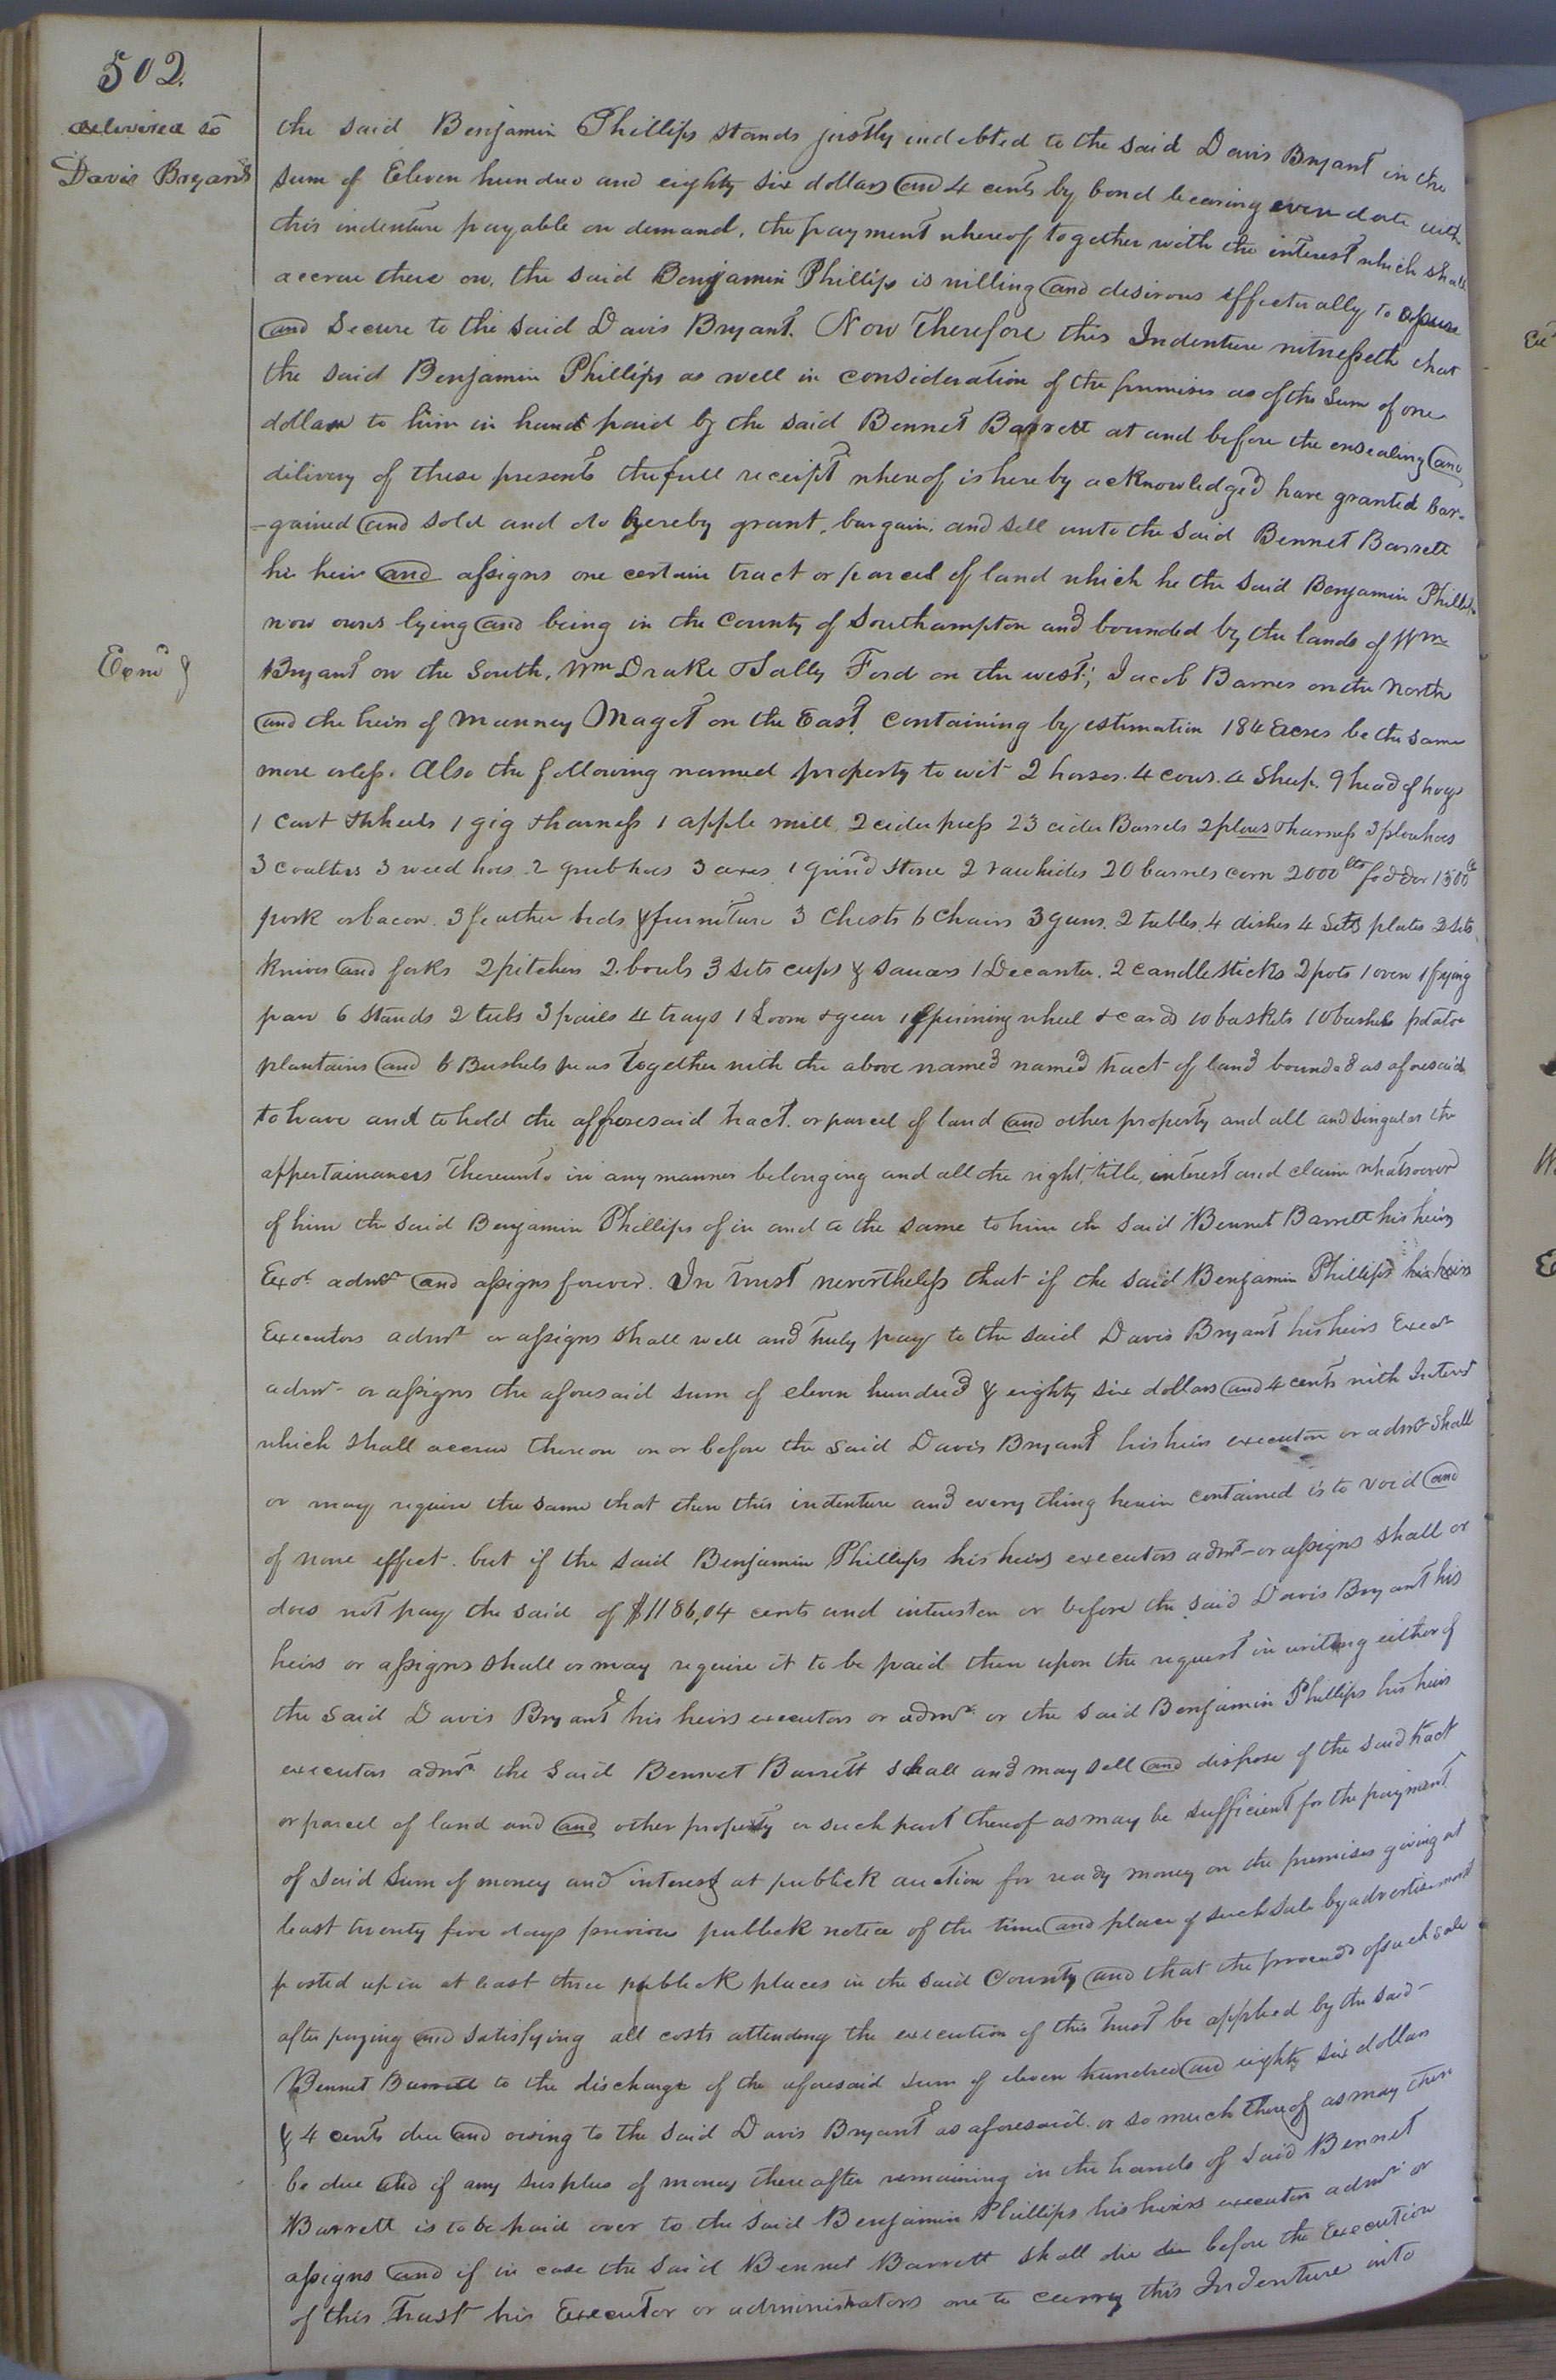 502.
delivered to
Davis Bryant
the said Benjamin Phillips stands justly indebted to the said Davis Bryant in the
sum of Eleven hundred and eighty six dollars and 4 cents by bond bearing even date with
this indenture payable on demand, the payment whereof together with the interest which shall
accrue there on, the said Benjamin Phillips is willing and desirous effectually to assure
and Secure to the said Davis Bryant. Now Therefore this Indenture witnesseth that
the said Benjamin Phillips as well in consideration of the premises as of the Sum of one
dollar to him in hand paid by the said Bennet Barrett at and before the ensealing and
dilivery of these presents the full receipt whereof is hereby acknowledged have granted bar-
-gained and sold and do hereby grant, bargain, and sell unto the said Bennet Barrett
his heirs and assigns one certain tract or parcel of land which he the said Benjamin Phillips
now owns lying and being in the County of Southampton and bounded by the lands of Wm
Bryant on the South, Wm Drake & Sally Ford on the west; Jacob Barnes on the North
Exmd
and the heirs of Manney Maget on the East, containing by estimation 184 acres be the same
more or less. Also the following named property to wit 2 horses. 4 cows. 4 Sheep. 9 head of hogs
1 Cart & wheels 1 gig & harness 1 apple mill, 2 cider press 23 cider Barrels 2 plows & harness 3 plowhoes
3 coulters 3 weed hoes 2 grubhoes 3 axes 1 grind stone 2 rawhides 20 barrels corn 2000 lbs fodder 1500
pork or bacon. 3 feather beds & furniture 3 Chests 6 Chairs 3 guns. 2 tables. 4 dishes 4 Setts plates 2 sets
knives and forks 2 pitchers 2 bowls 3 sets cups & saucers 1 Decanter. 2 candlesticks 2 pots 1 oven 1 frying
pan 6 Stands 2 tubs 3 pails 4 trays 1 Loom & gear 1 Spinning wheel & cards 10 baskets 10 bushels potatoe
plantains and 6 Bushels peas together with the above named named tract of land bounded as aforesaid
to have and to hold the afforesaid tract. or parcel of land and other property and all and singular the
appertainances thereunto in any manner belonging and all the right, title, interest and claim whatsoever
of him the said Benjamin Phillips of in and to the same to him the said Bennet Barrett his heirs
Exor. admr and assigns forever. In trust nevertheless that if the said Benjamin Phillips his heirs
Executors admr or assigns shall well and truly pay to the said Davis Bryant his heirs Exeor
admr or assigns the aforesaid sum of eleven hundred & eighty six dollars and 4 cents with Interest
which shall accrue thereon on or before the said Davis Bryant his heirs executors or admr shall
or may require the same that then this indenture and every thing herein contained is to void and
of none effect. but if the said Benjamin Phillips his heirs executors admr or assigns shall or
does not pay the said of $1186,04 cents and interest on or before the said Davis Bryant his
heirs or assigns shall or may require it to be paid then upon the request in writing either of
the said Davis Bryant his heirs executors or admr or the said Benjamin Phillips his heirs
executors admr the said Bennet Barrett shall and may sell and dispose of the said tract
or parcel of land and and other property or such part thereof as may be sufficient for the payment
of said sum of money and interest at publick auction for ready money on the premises giving at
least twenty five days previous publick notice of the time and place of such sale by advertisement
posted up in at least three publick places in the said County and that the proceeds of such sale
after paying and satisfying all costs attending the execution of this trust be applied by the said
Bennet Barrett to the discharge of the aforesaid sum of eleven hundred and eighty six dollars
& 4 cents due and owing to the said Davis Bryant as aforesaid. or so much thereof as may then
be due and if any surplus of money thereafter remaining in the hands of said Bennet
Barrett is to be paid over to the said Benjamin Phillips his heirs executors admr or
assigns and if in case the said Bennet Barrett shall die die before the Execution
of this Trust his Executor or administrators are to carry this Indenture into